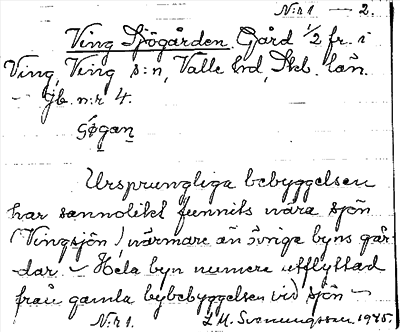 N:r 1 — 2.
Ving Sjögården. Gård 1/2 fr. i
Ving, Ving s:n, Valle hd, Skb. län.
– Jb. n:r 4.
Ursprungliga bebyggelsen
har sannolikt funnits nära sjön
(Vingsjön) närmare än övrige byns går-
dar. – Hela byn numera utflyttad
från gamla bybebyggelsen vid sjön –
N:r 1. L.M. Svenungsson 1945.